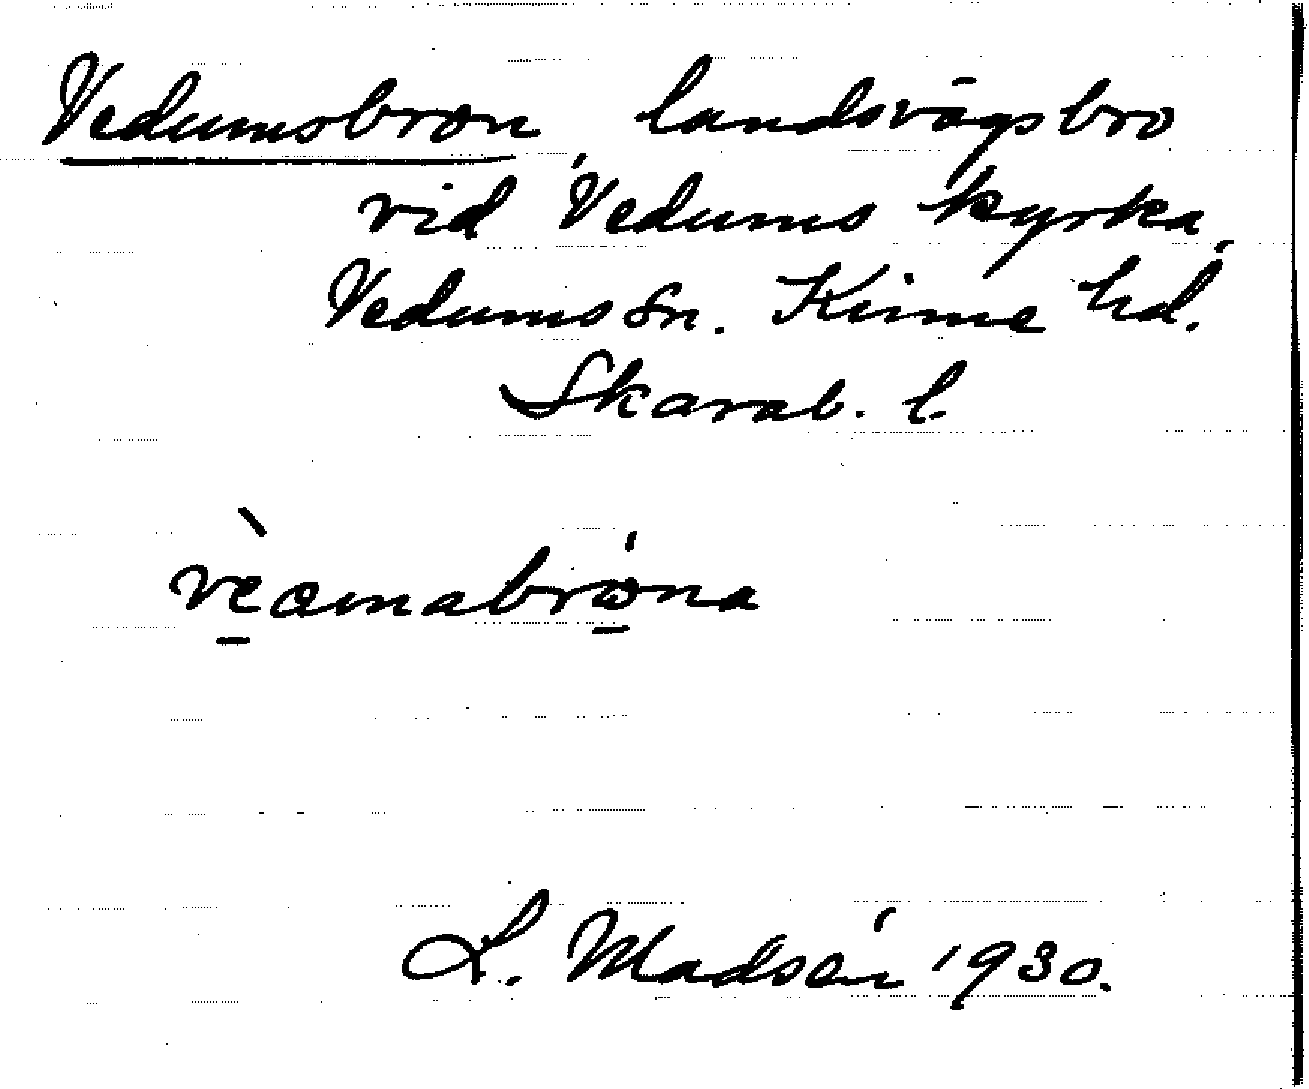 Vedumsbron, landsvägsbro
vid Vedums kyrka,
Vedums sn. Kinne hd.
Skarab. l.
L. Madsén 1930.